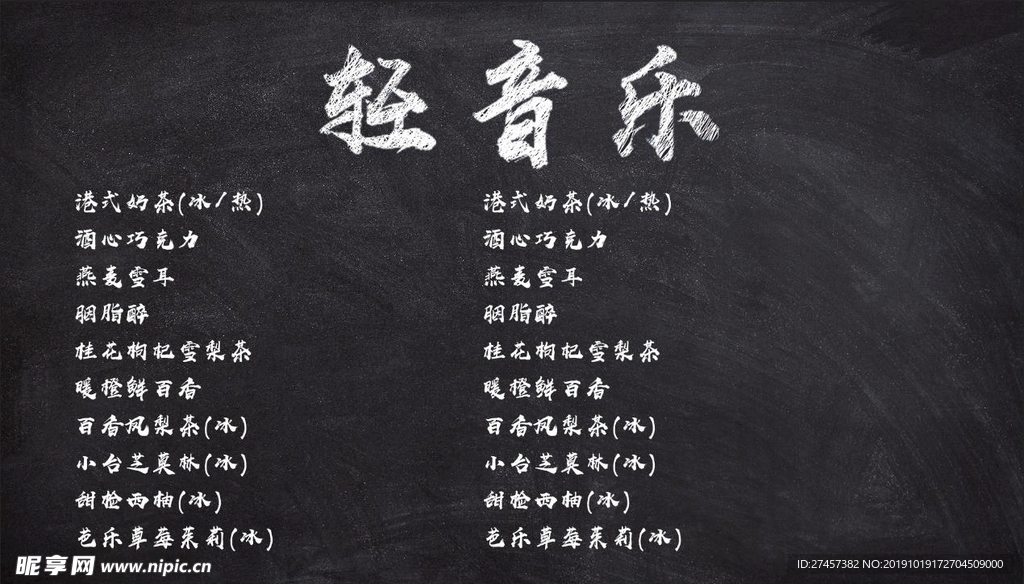 轻音乐
港式奶茶(冰/热)
酒心巧克力
燕麦雪耳
胭脂醉
桂花枸杞雪梨茶
暖橙鲜百香
百香凤梨茶(冰)
小台芝莫林(冰)
甜橙西柚(冰)
芝乐草莓茉莉(冰)
港式奶茶(冰/热)
酒心巧克力
燕麦雪耳
胭脂醉
桂花枸杞雪梨茶
暖橙鲜百香
百香凤梨茶(冰)
小台芝莫林(冰)
甜橙西柚(冰)
芝乐草莓茉莉(冰)
昵享网 www.nipic.cn
ID:27457382 NO:20191019172704509000